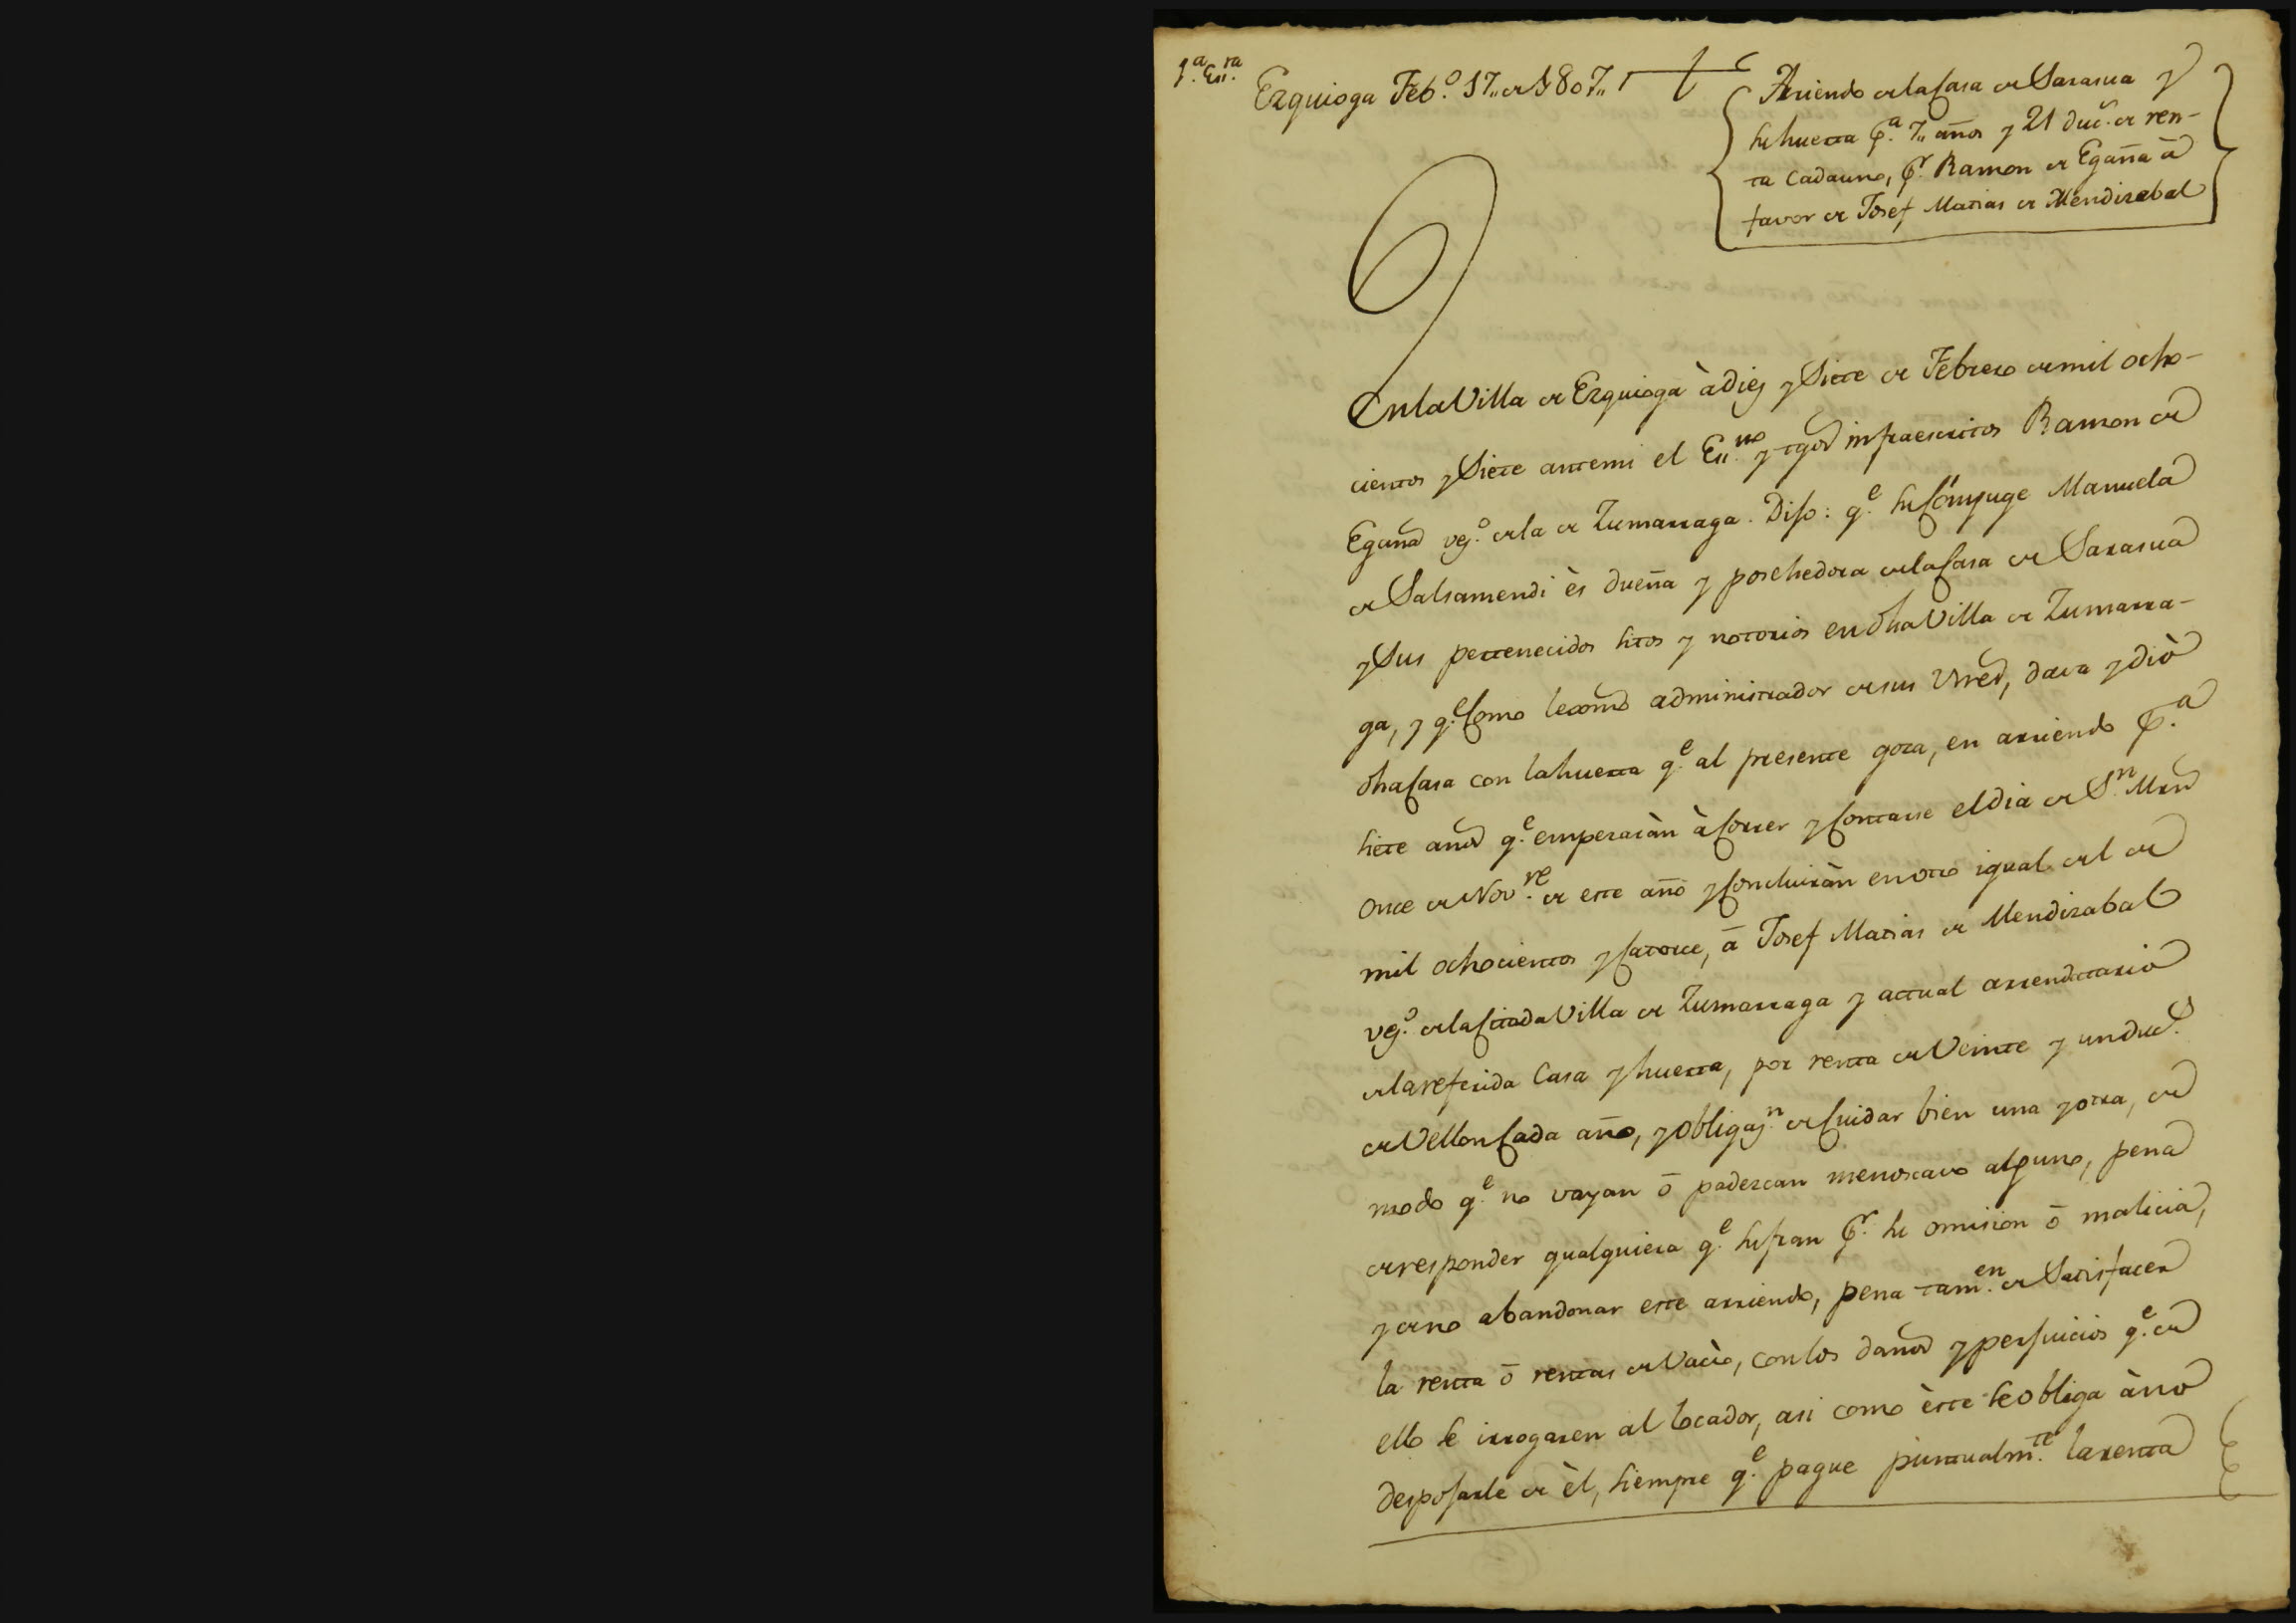 1.ª Es.ra
Ezquioga Feb.º 17,, de 1807,,
Arriendo de la Casa de Sarasua y
su huerta p.ª 7,, años y 21 duc.s de ren-
ta cada uno, p.r Ramon de Egaña à
favor de Josef Matias de Mendizabal
En la Villa de Ezquioga à diez y Siete de Febrero de mil ocho-
cientos y Siete ante mi el Es.no y tgos infraescritos Ramon de
Egaña vez.º de la de Zumarraga. Dijo: q.e su Cónyuge Manuela
de Salsamendi ès dueña y posehedora de la Casa de Sarasua
y Sus pertenecidos sitos y notorios en dha Villa de Zumarra-
ga, y q.e Como lexmo administrador de sus Vnes, dava y diò
dha Casa con la huerta q.e al presente goza, en arriendo p.ª
siete años q.e empezaràn à Correr y Contarse el dia de S.n Mrn
once de Nov.re de este año y Concluiràn en otro igual del de
mil ochocientos y Catorce, à Josef Matias de Mendizabal
vez.º de la Citada Villa de Zumarraga y actual arrendatario
de la referida Casa y huerta, por renta de Veinte y un duc.s
de Vellon Cada año, y obligaz.n de Cuidar bien una y otra, de
modo q.e no vayan ò padezcan menoscavo alguno, pena
de responder qualquiera q.e sufran p.r su omision ò malicia,
y de no abandonar este arriendo, pena tam.en de Satisfacer
la renta ò rentas de Vacio, con los daños y perjuicios q.e de
ello se irrogaren al locador, asi como èste se obliga à no
despojarle de èl, siempre q.e pague puntualm.te la renta